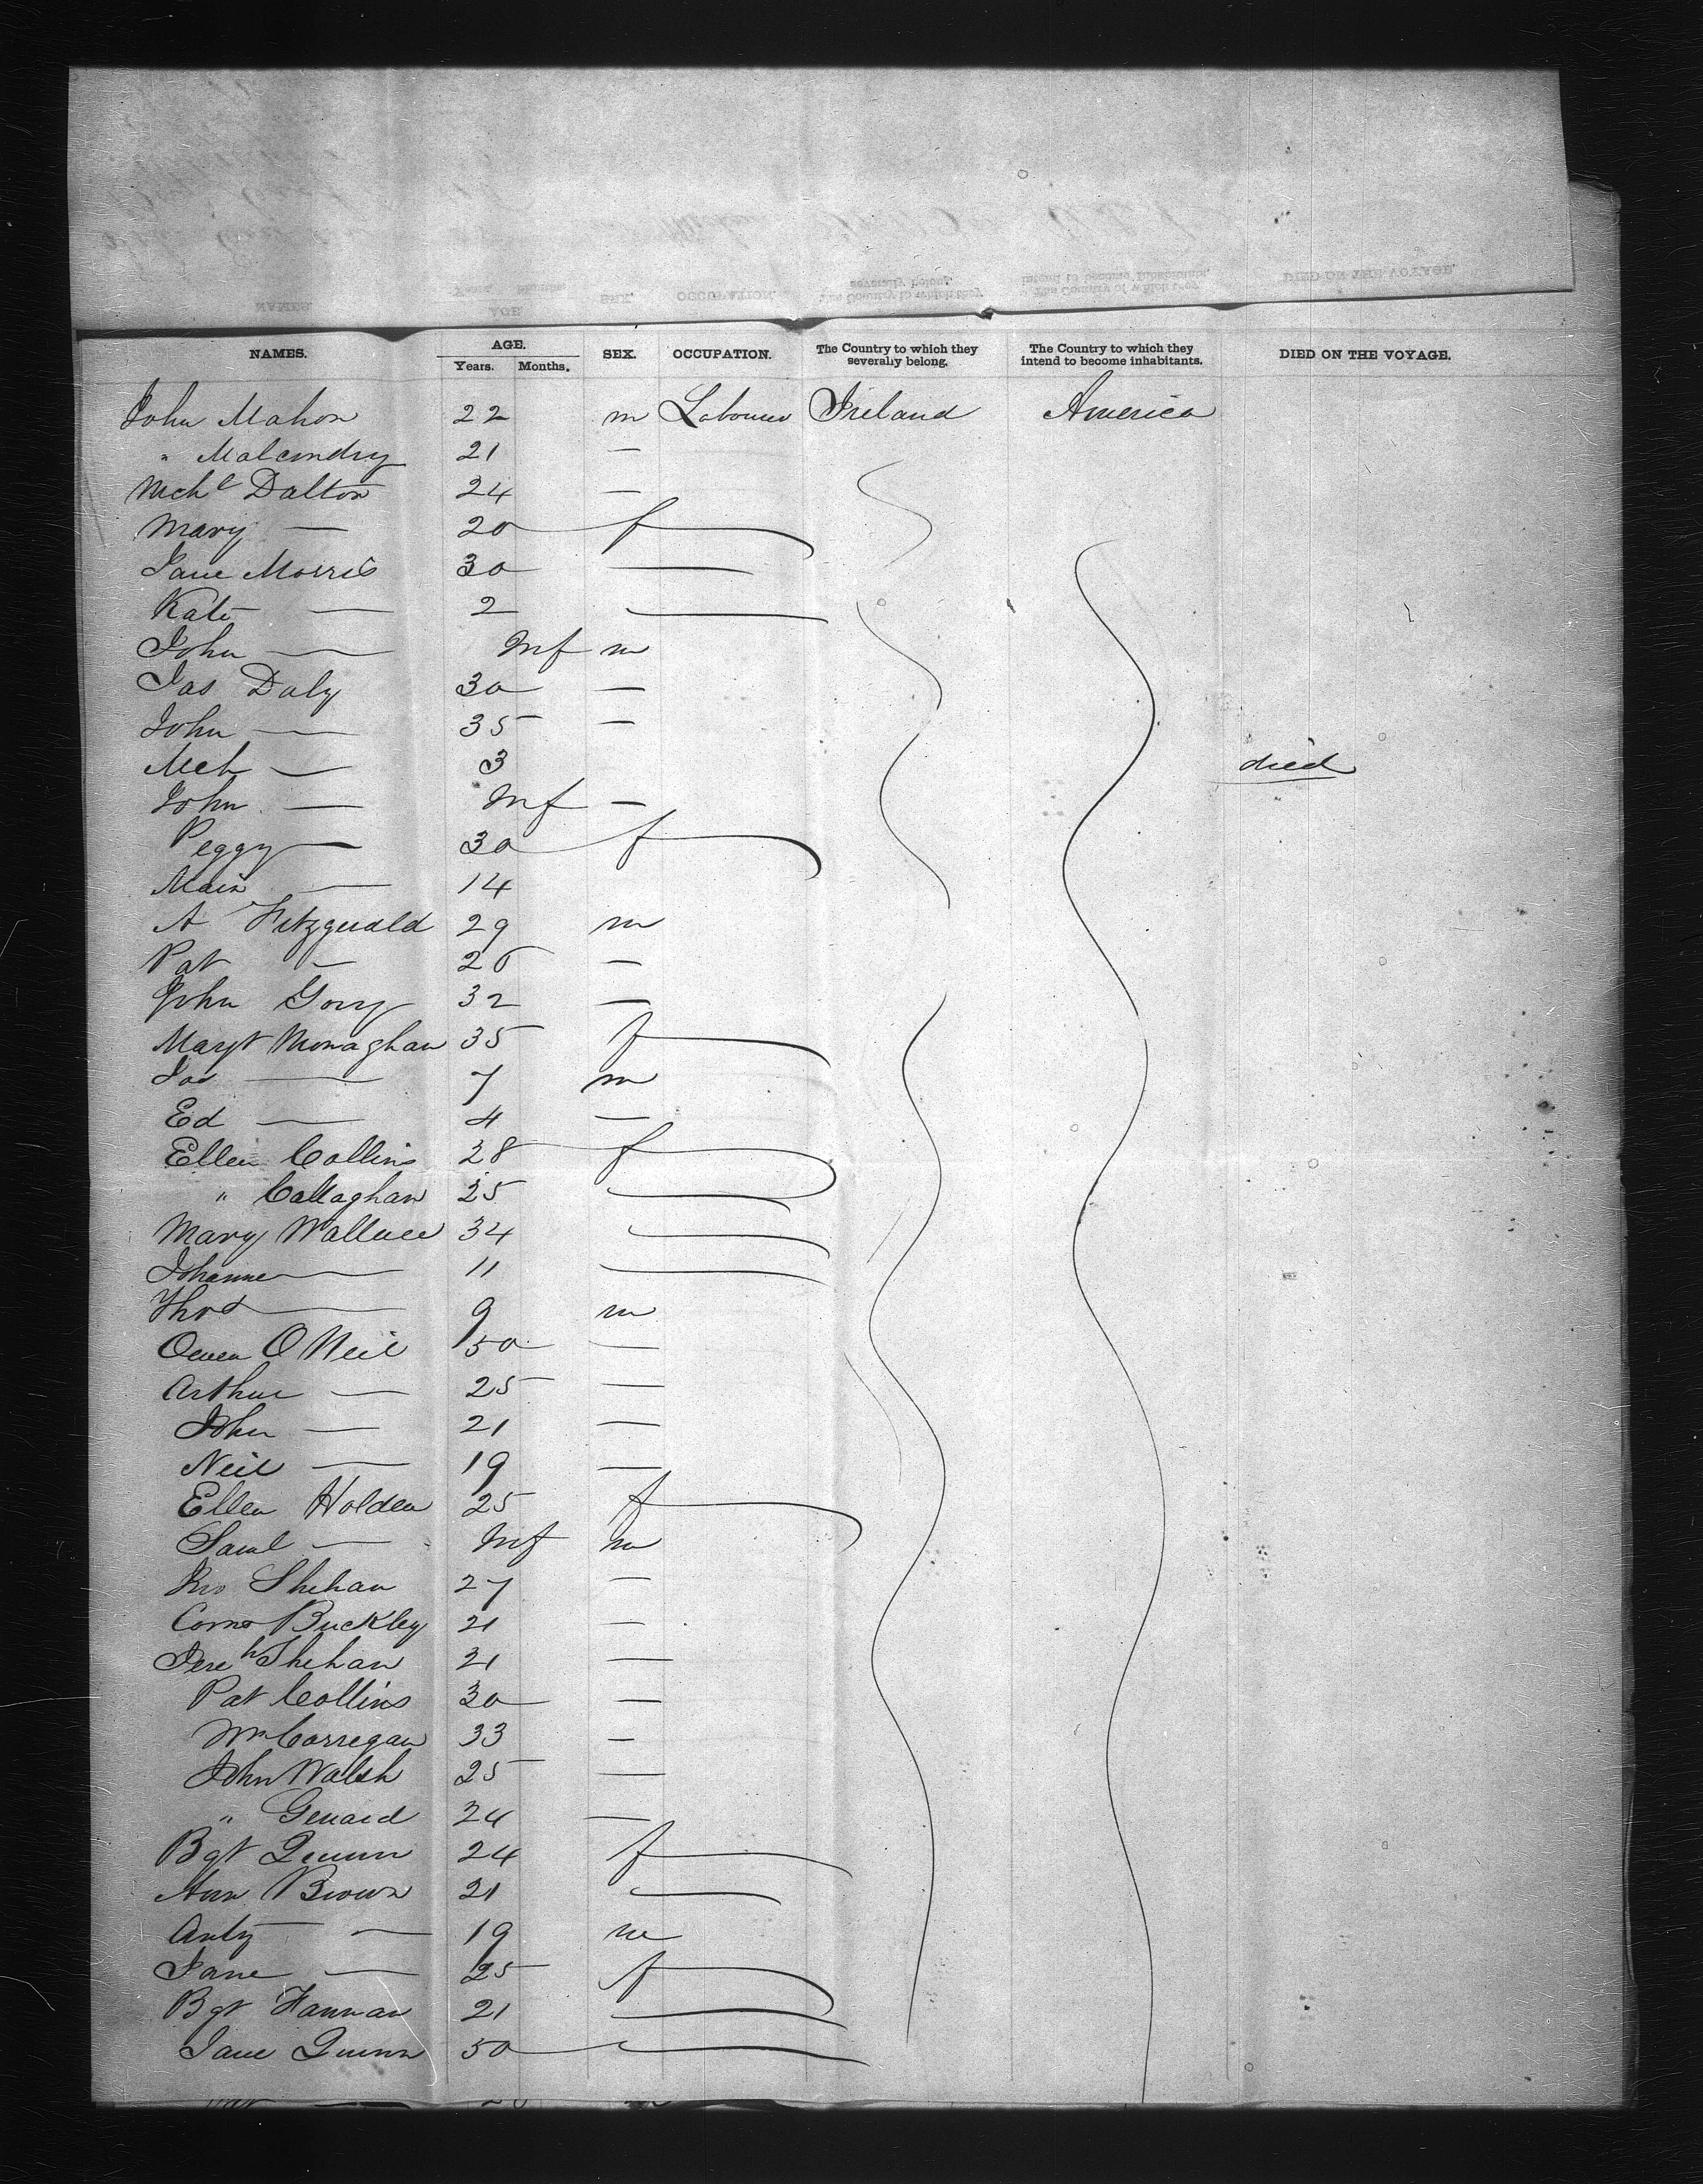 NAMES. AGE. SEX. OCCUPATION. The Country to which they severally belong. The Country to which they intend to become inhabitants. DIED ON THE VOYAGE.
Years. Months.
John Mahon 22 m Labourer Ireland America
" 21 —
Mchl Dalton 24 —
Mary — 20 f
Jane Morris 30 —
Kate — 2 —
John — Inf m
Jas Daly 30 —
John — 35 —
Mch — 3 died
John — Inf —
Peggy — 30 f
— 14
A Fitzgerald 29 m
Pat — 26 —
John Gorry 32 —
Margt Monaghan 35 f
Jas — 7 m
Ed — 4 —
Ellen Collins 28 f
" Callaghan 25 —
Mary Wallace 34 —
Johanna — 11 —
Thos — 9 m
Owen O Neil 50 —
Arthur — 25 —
John — 21 —
Neil — 19 —
Ellen Holden 25 f
Saml — Inf m
Jno Shehan 27 —
Corns Buckley 21 —
Jereh Shehan 21 —
Pat Collins 30 —
Wm Corregan 33 —
John Walsh 25 —
" 24 —
Bgt Quinn 24 f
Ann Brown 21 —
Anty — 19 m
Jane — 25 f
Bgt Hannan 21 —
Jane Quinn 50 —